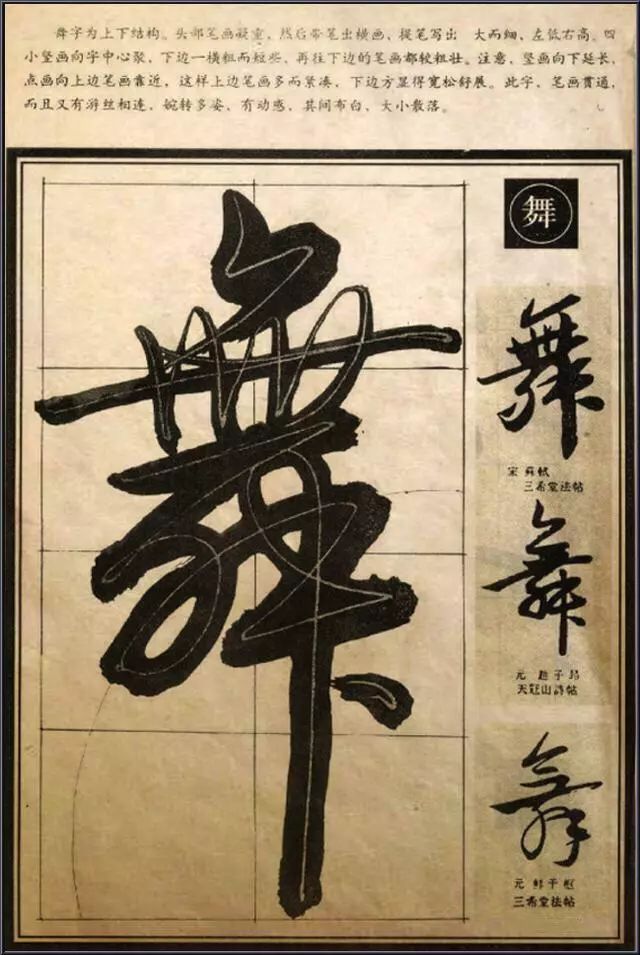 舞字为上下结构。头部笔画凝重，然后带笔出横画，提笔写出 大而细、左低右高。四
小竖画向字中心聚，下边一横粗而短些，再往下边的笔画都较粗壮。注意，竖画向下延长，
点画向上边笔画靠近，这样上边笔画多而紧凑，下边方显得宽松舒展。此字，笔画贯通，
而且又有游丝相连，婉转多姿，有动感，其间布白，大小散落。
舞
舞
舞
宋 蘇軾
三希堂法帖
舞
元 趙子昂
天冠山詩帖
舞
元 鲜于枢
三希堂法帖